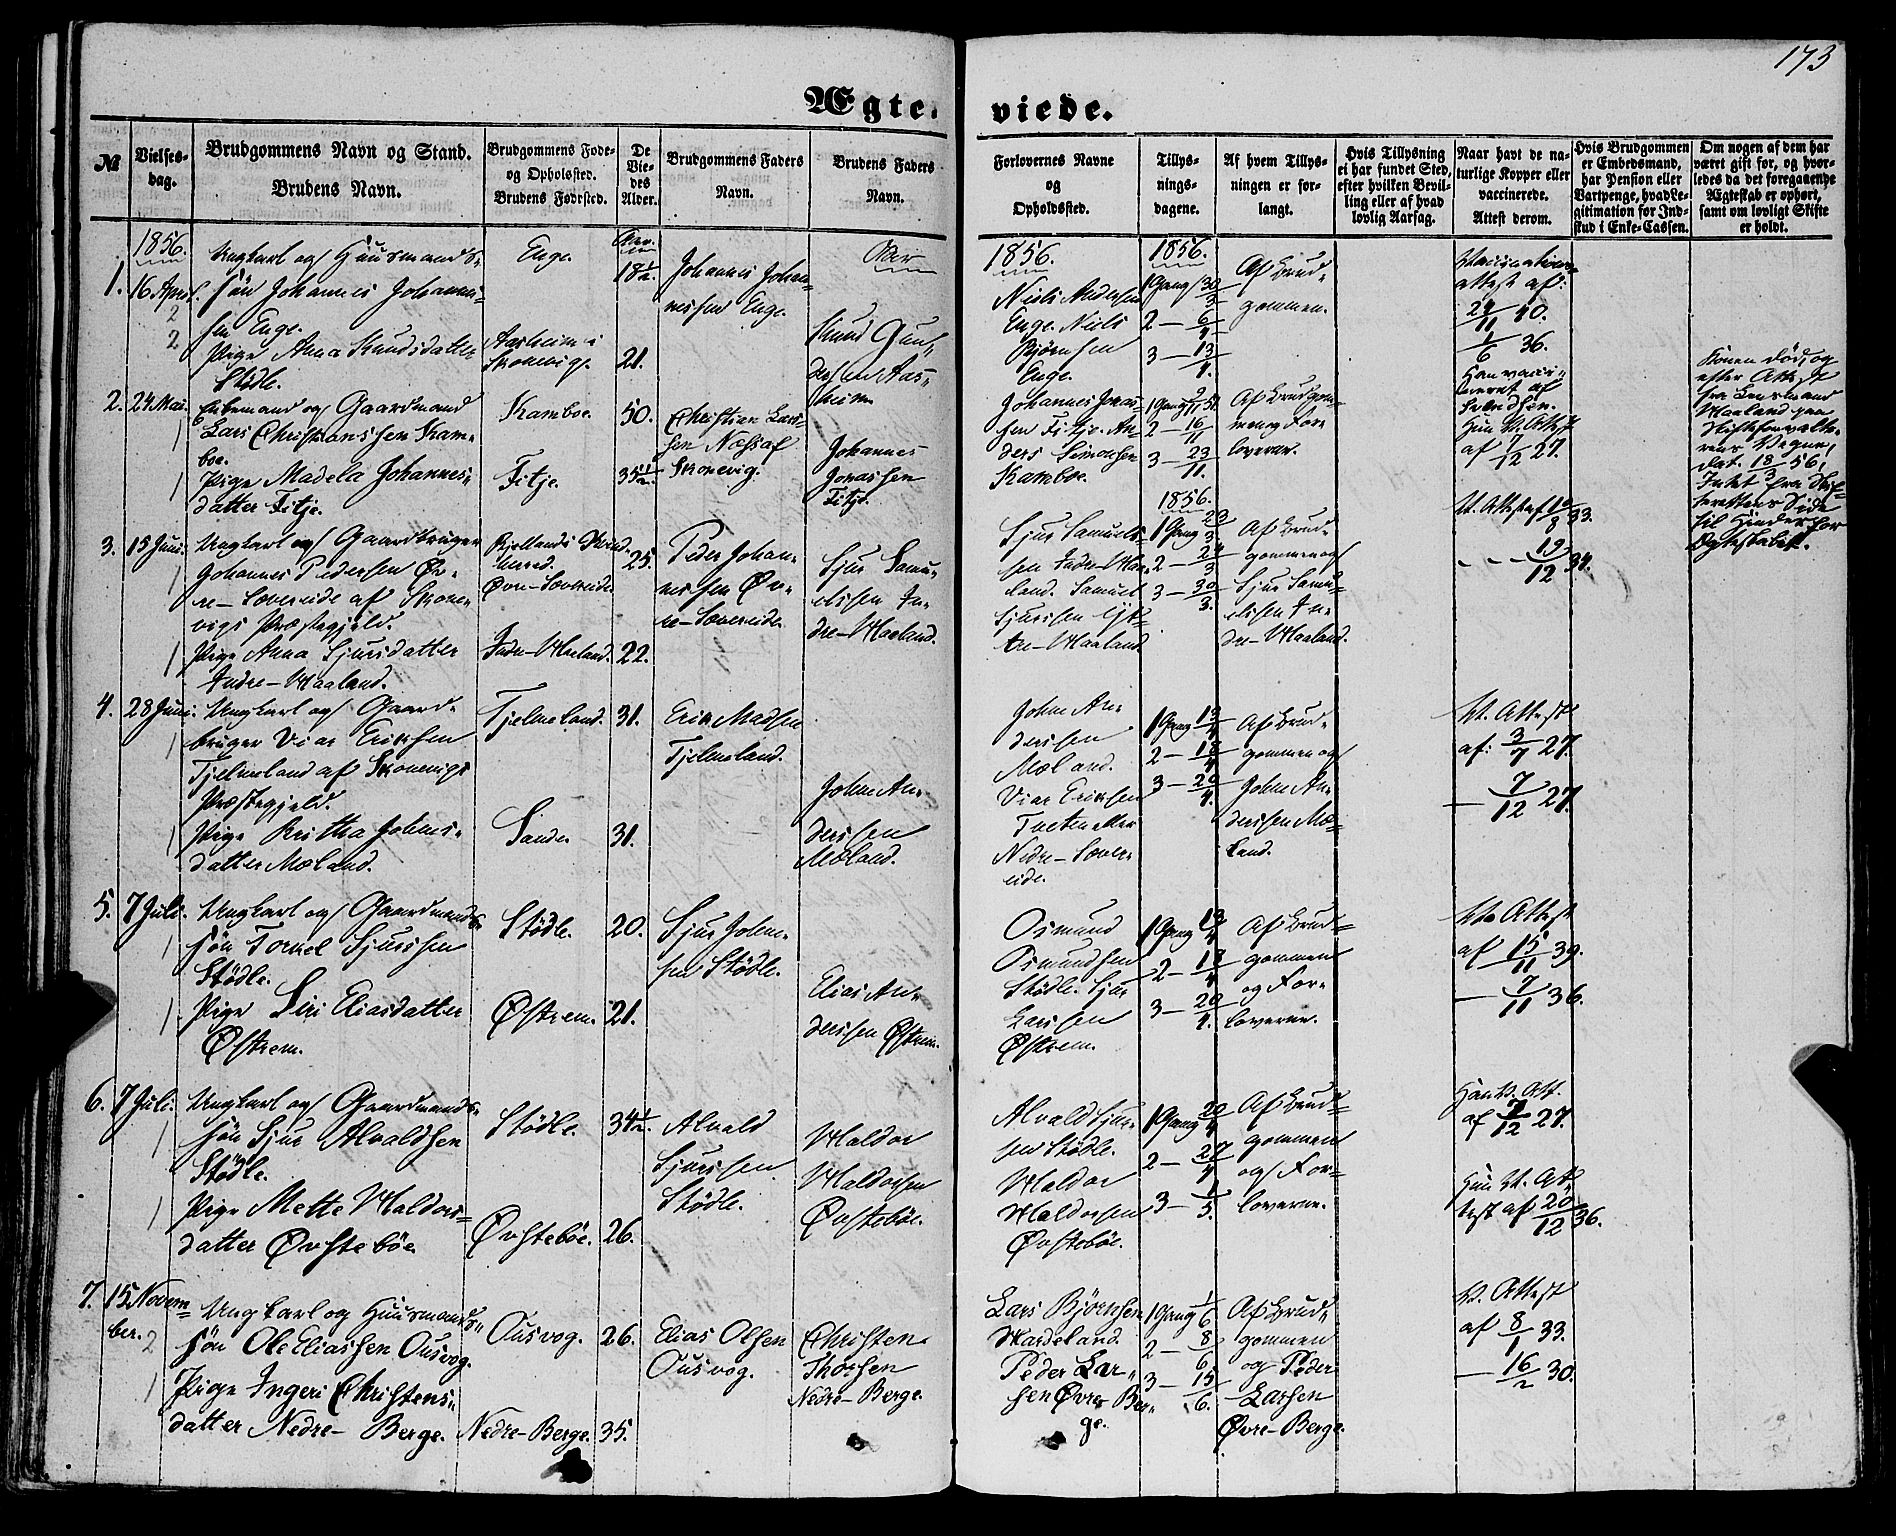 173
Ægteviede.
№
Vielses-
dag.
Brudgommens Navn og Stand.
Brudens Navn.
Brudgommens Føde-
og Opholdssted.
Brudens Fødested.
De
Vie-
des
Alder.
Brudgommens Faders
Navn.
Brudens Faders
Navn.
Forlovernes Navne
og
Opholdssted.
Tillys-
nings-
dagene.
Af hvem Tillys-
ningen er for-
langt.
Hvis Tillysning
ei har fundet Sted,
efter hvilken Bevil-
ling eller af hvad
lovlig Aarsag.
Naar havt de na-
turlige Kopper eller
vaccinerede.
Attest derom.
Hvis Brudgommen
er Embedsmand,
har Pension eller
Vartpenge, hvad Le-
gitimation for Ind-
skud i Enke-Cassen.
Om nogen af dem har
været gift før, og hvor-
ledes da det foregaaende
Ægteskab er ophørt,
samt om lovligt Skifte
er holdt.
1856.
1.
16 April.
Ungkarl og Huusmands-
søn Johannes Johannes-
sen Enge.
Pige Anna Knudsdatter
Stödle.
Enge.
Aasheim i
Skonevig.
18½
21.
Johannes Johan-
nessen Enge.
Knud Gun-
dersen Aas-
heim.
1856.
Niels Andersen
Enge. Niels
Bjørnsen
Enge.
1856.
1 Gang 30/3
2 — 6/4
3 — 13/4.
Af Brud-
gommen.
Vaccinations-
attest af:
24/11 40.
1/6 36.
2.
24 Mai.
Enkemand og Gaardmand
Lars Christianssen Kam-
boe.
Pige Madela Johannes-
datter Fitje.
Kamboe.
Fitje.
50.
35½
Christian Lars-
sen Næs af
Skonevig.
Johannes
Jonassen
Fitje.
Johannes Jonas-
sen Fitje. An-
ders Simonsen
Kamboe.
2 — 16/11
3 — 23/11.
Af Brudgom-
men og For-
loverne.
Han vacci-
neret af
Svendsen.
Hun V. Attest
af 7/12 27.
Konen død, og
efter Attest
fra Lensmand
Maaland paa
Skifteforvalte-
rens Vegne,
dat. 18/3 56,
Intet fra Skif-
terettens Side
til Hinder for
Ægteskabet.
3.
15 Juni.
Ungkarl og Gaardbruger
Johannes Pedersen Øv-
re-Sævereide af Skone-
vigs Præstegjeld.
Pige Anna Sjursdatter
Indre-Maaland.
Øvre-Sævereide.
Indre-Maaland.
25.
22.
Peder Johan-
nessen Øv-
re-Sævereide.
Sjur Samu-
elssen In-
dre-Maaland.
Sjur Samuels-
sen Indre-Maa-
land. Samuel
Sjurssen Yt-
tre-Maaland
1856.
1 Gang 23/3
2 — 24/3
3 — 30/3.
Af Brud-
gommen og
Sjur Samu-
elssen In-
dre-Maaland.
V. Attest af 10/8 33.
- - - 19/12 34.
4.
28 Juni.
Ungkarl og Gaard-
bruger Viar Eriksen
Tjelmeland af Skonevigs
Præstegjeld.
Pige Britha Johns-
datter Mæland.
Tjelmeland.
Sande.
31.
31.
Erik Madsen
Tjelmeland.
John An-
derssen
Mæland.
John An-
derssen
Mæland.
Viar Eriksen
Nedre-Sæver-
eide.
1 Gang 13/4
2 — 18/4
3 — 20/4.
Af Brud-
gommen og
John An-
derssen Mæ-
land.
V. Attest
af: 3/7 27.
— 7/12 27.
5.
7 Juli.
Ungkarl og Gaardmands-
søn Tormel Sjurssen
Stödle.
Pige Siri Eliasdatter
Østrem.
Stödle.
Østrem.
20.
21.
Sjur John-
sen Stödle.
Elias An-
derssen Østrem.
Osmund
Osmundsen
Stödle. Sjur
Larssen
Østrem.
1 Gang 13/4
2 — 18/4
3 — 20/4.
Af Brud-
gommen
og For-
loverne.
V. Attest
af 15/11 39.
— 7/11 36.
6.
7 Juli.
Ungkarl og Gaardmands-
søn Sjur Alvaldsen
Stödle.
Pige Mette Haldors-
datter Øvstebøe.
Stödle.
Øvstebøe.
34½
26.
Alvald
Sjurssen
Stödle.
Haldor
Haldorsen
Øvstebøe.
Alvald Sjurs-
sen Stödle.
Haldor
Haldorsen
Øvstebøe.
1 Gang 20/4
2 — 27/4
3 — 1/5.
Af Brud-
gommen
og For-
loverne.
Han V. Att.
af 7/12 27.
Hun V. At-
test af 20/12 36.
7.
15 Novem-
ber.
Ungkarl og Huusmands-
søn Ole Eliassen Ousvog.
Pige Ingeri Christens-
datter Nedre-Berge.
Ousvog.
Nedre-Berge.
26.
35.
Elias Olsen
Ousvog.
Christen
Thorsen
Nedre-Berge.
Lars Bjørnsen
Hardeland.
Peder Lar-
sen Øvre Ber-
ge.
1 Gang 1/6
2 — 8/6
3 — 15/6.
Af Brud-
gommen
og Peder
Larsen
Øvre-Berge.
V. Attest
af 8/1 33.
— 16/2 30.